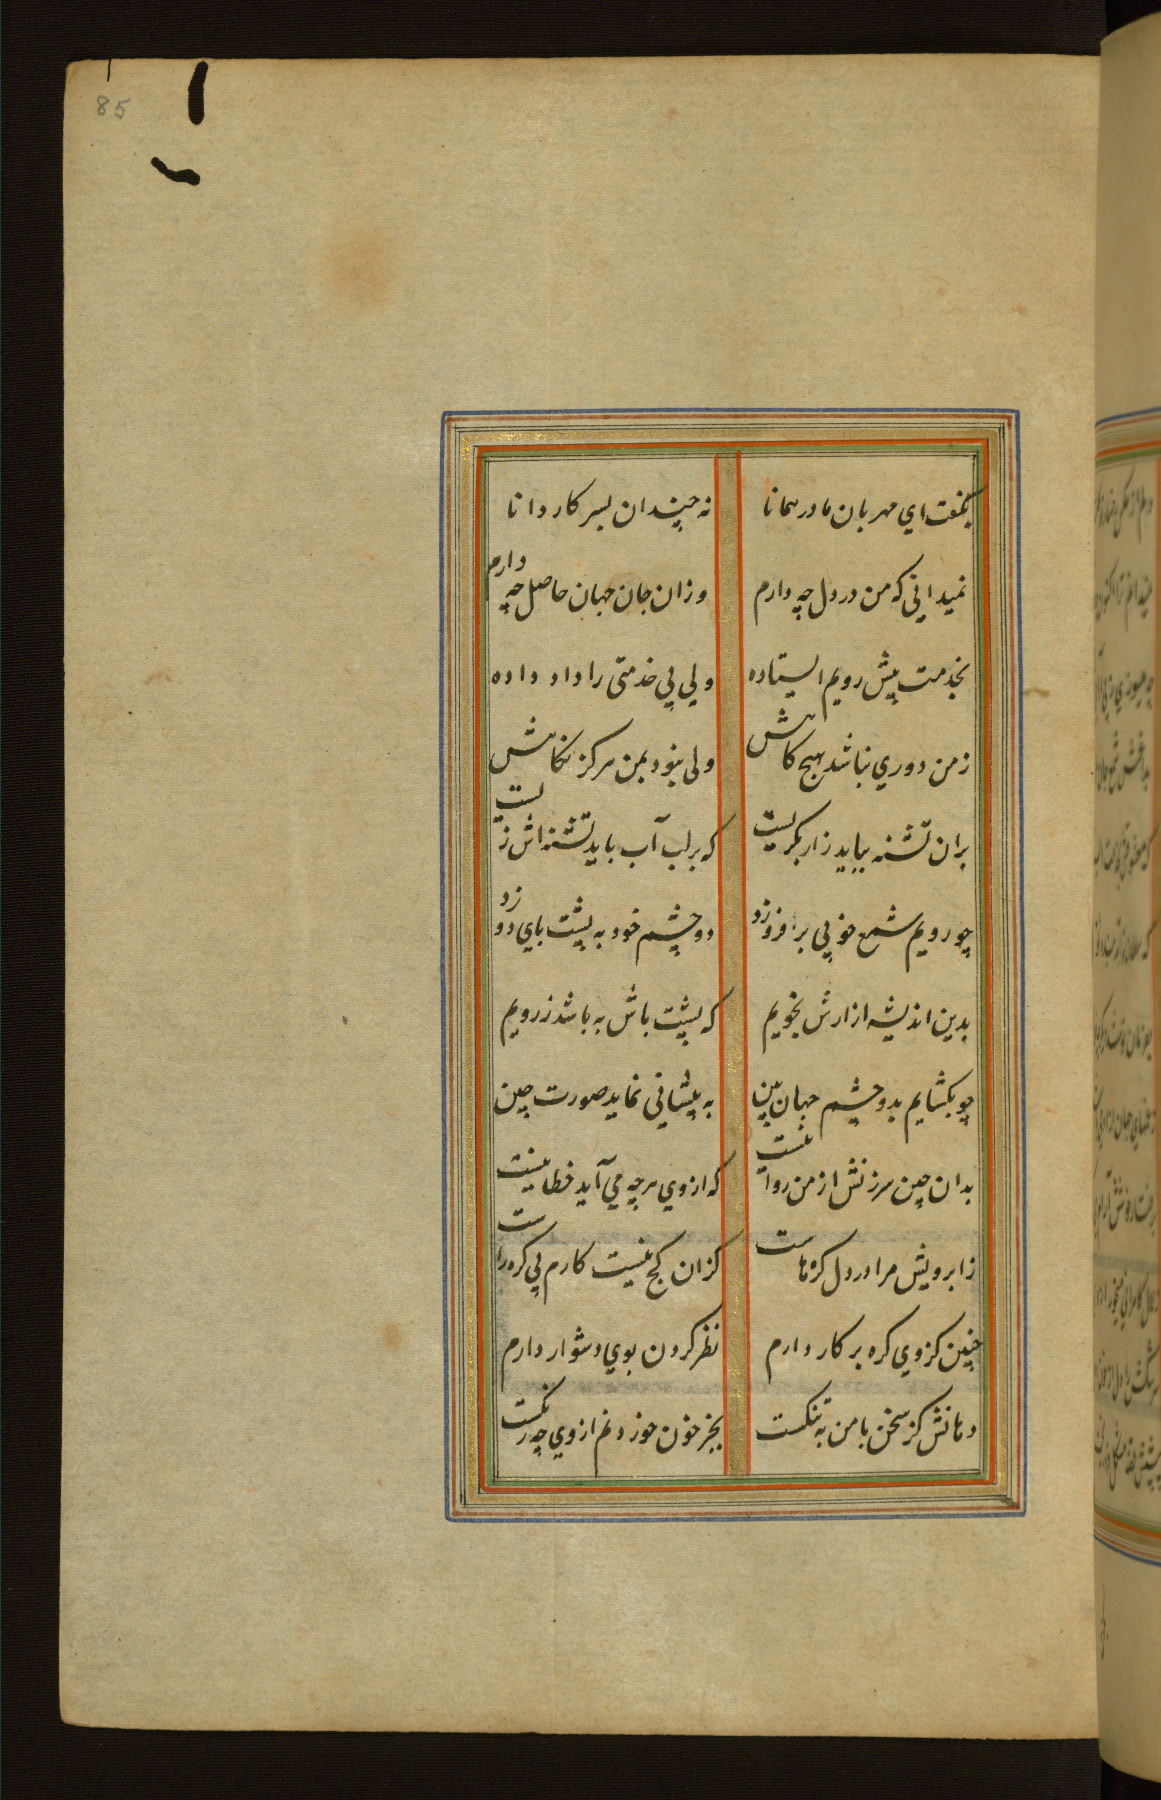 85
بگفت اي مهربان مادر همانا نه چندان بسر کار دانا
نميداني که من در دل چه دارم وزان جان جهان حاصل چه دارم
بخدمت پيش رويم ايستاده ولي پي خدمتي را داد داده
زمن دوري نباشد هيچ کاهش ولي نبود بمن هرگز نکاهش
بران تشنه ببايد زار بگريست که برلب آب بايد تشنه اش زيست
چو رويم شمع خوبي برافروزد دو چشم خود به پشت پاي دوزد
بدين انديشه ازارش نجويم که پشت پاش به باشد ز رويم
چو بکشايم بدو چشم جهان بين به پيشاني نمايد صورت چين
بدان چين سرزنش از من روا نيست که از وي هرچه مي آيد خطا نيست
ز ابرويش مرا در دل کره هاست کزان کج نيست کارم پي کره راست
چنين کز وي کره بر کار دارم نظر کردن بوي دشوار دارم
دهانش کز سخن با من به تنکست بجز خون خوردنم از وي چه رنکست